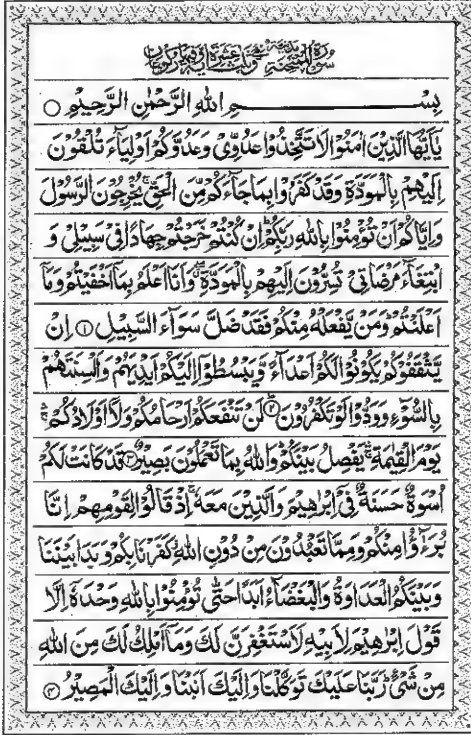 سُوْرَةُ الْمُمْتَحِنَةِ مَدَنِيَّةٌ وَّهِيَ ثَلٰثَ عَشْرَةَ اٰيَةً وَّفِيْهَا رُكُوْعَانِ
بِسْــــــــــــمِ اللّٰهِ الرَّحْمٰنِ الرَّحِيْمِ ○
يٰۤاَيُّهَا الَّذِيْنَ اٰمَنُوْا لَا تَتَّخِذُوْا عَدُوِّيْ وَعَدُوَّكُمْ اَوْلِيَآءَ تُلْقُوْنَ
اِلَيْهِمْ بِالْمَوَدَّةِ وَقَدْ كَفَرُوْا بِمَا جَآءَكُمْ مِّنَ الْحَقِّ ۚ يُخْرِجُوْنَ الرَّسُوْلَ
وَاِيَّاكُمْ اَنْ تُؤْمِنُوْا بِاللّٰهِ رَبِّكُمْ ؕ اِنْ كُنْتُمْ خَرَجْتُمْ جِهَادًا فِيْ سَبِيْلِيْ وَ
ابْتِغَآءَ مَرْضَاتِيْ تُسِرُّوْنَ اِلَيْهِمْ بِالْمَوَدَّةِ ۖ وَاَنَا اَعْلَمُ بِمَاۤ اَخْفَيْتُمْ وَمَاۤ
اَعْلَنْتُمْ ؕ وَمَنْ يَّفْعَلْهُ مِنْكُمْ فَقَدْ ضَلَّ سَوَآءَ السَّبِيْلِ ① اِنْ
يَّثْقَفُوْكُمْ يَكُوْنُوْا لَكُمْ اَعْدَآءً وَّيَبْسُطُوْۤا اِلَيْكُمْ اَيْدِيَهُمْ وَاَلْسِنَتَهُمْ
بِالسُّوْٓءِ وَوَدُّوْا لَوْ تَكْفُرُوْنَ ② لَنْ تَنْفَعَكُمْ اَرْحَامُكُمْ وَلَاۤ اَوْلَادُكُمْ ۛۚ
يَوْمَ الْقِيٰمَةِ ۛۚ يَفْصِلُ بَيْنَكُمْ ؕ وَاللّٰهُ بِمَا تَعْمَلُوْنَ بَصِيْرٌ ③ قَدْ كَانَتْ لَكُمْ
اُسْوَةٌ حَسَنَةٌ فِيْۤ اِبْرٰهِيْمَ وَالَّذِيْنَ مَعَهٗ ۚ اِذْ قَالُوْا لِقَوْمِهِمْ اِنَّا
بُرَءٰٓؤُا مِنْكُمْ وَمِمَّا تَعْبُدُوْنَ مِنْ دُوْنِ اللّٰهِ ؗ كَفَرْنَا بِكُمْ وَبَدَا بَيْنَنَا
وَبَيْنَكُمُ الْعَدَاوَةُ وَالْبَغْضَآءُ اَبَدًا حَتّٰى تُؤْمِنُوْا بِاللّٰهِ وَحْدَهٗۤ اِلَّا
قَوْلَ اِبْرٰهِيْمَ لِاَبِيْهِ لَاَسْتَغْفِرَنَّ لَكَ وَمَاۤ اَمْلِكُ لَكَ مِنَ اللّٰهِ
مِنْ شَيْءٍ ؕ رَبَّنَا عَلَيْكَ تَوَكَّلْنَا وَاِلَيْكَ اَنَبْنَا وَاِلَيْكَ الْمَصِيْرُ ④